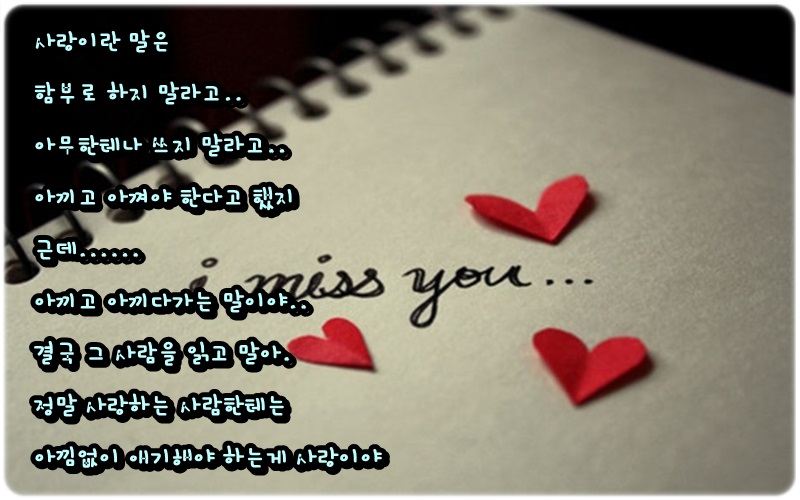 사랑이란 말은
함부로 하지 말라고..
아무한테나 쓰지 말라고..
아끼고 아껴야 한다고 했지
근데......
i miss you...
아끼고 아끼다가는 말이야..
결국 그 사람을 읽고 말아.
정말 사랑하는 사람한테는
아낌없이 얘기해야 하는게 사랑이야